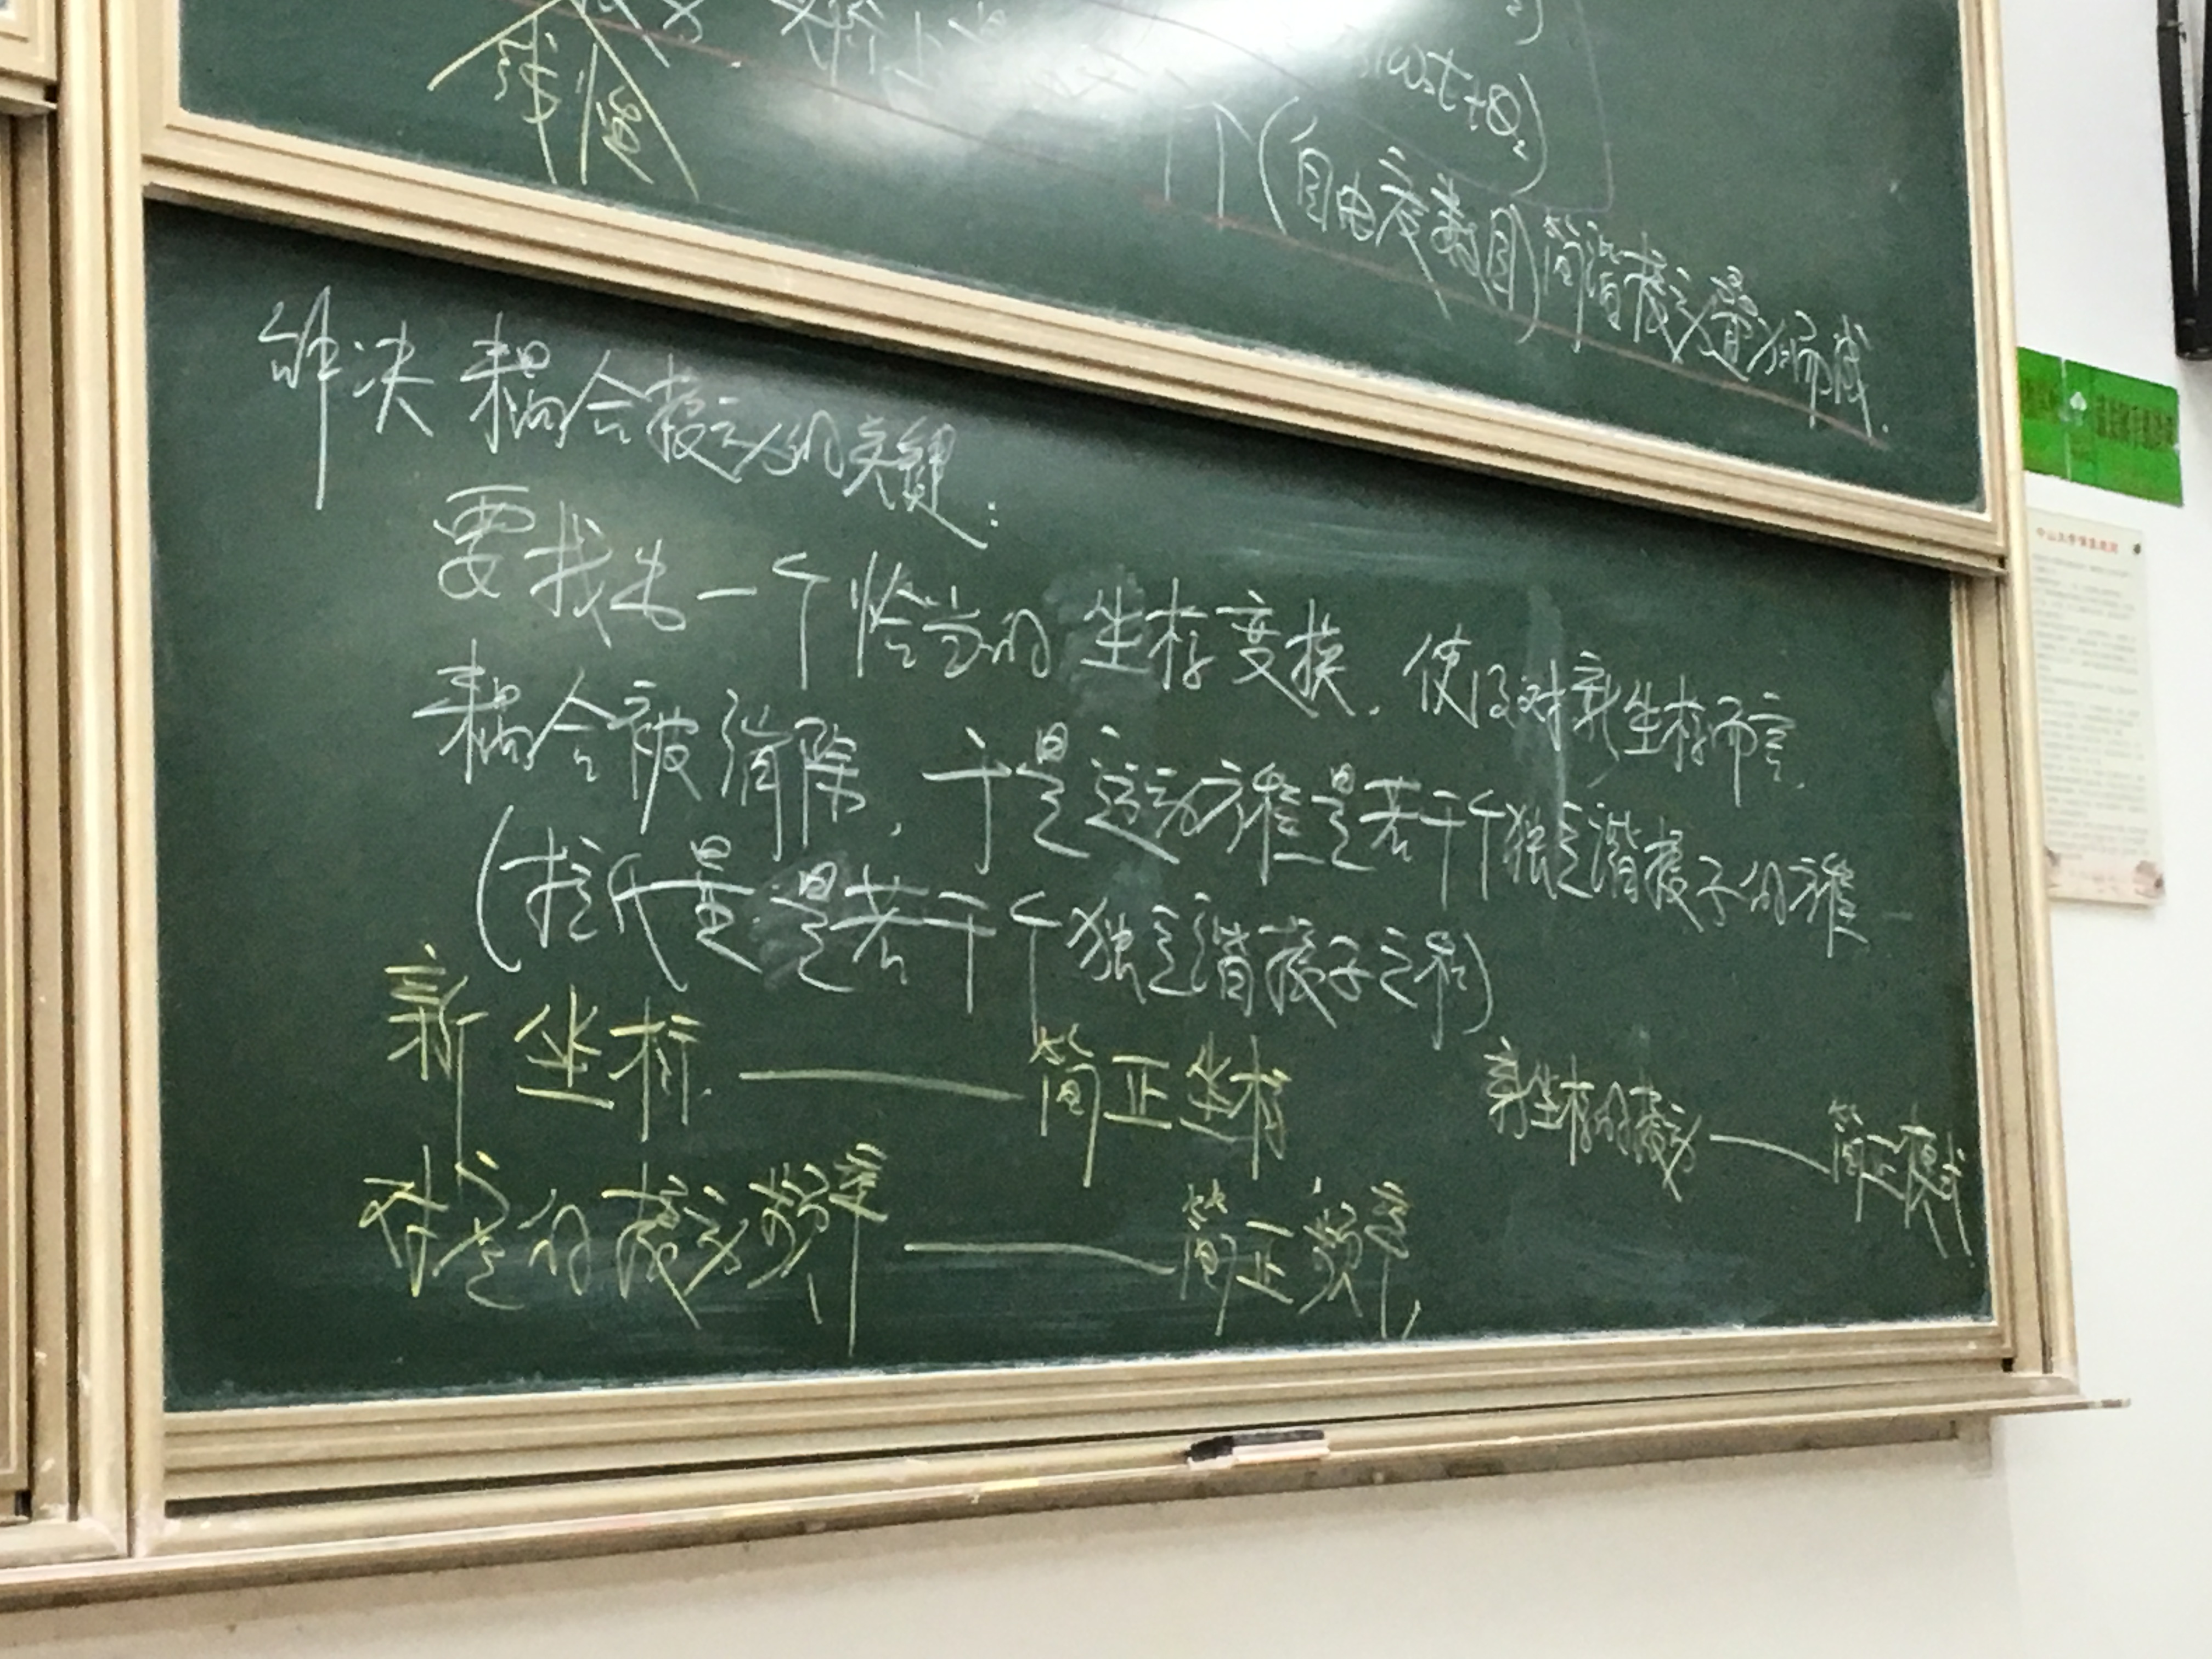 ω₂t+θ₂)
个(自由度数目)简谐振动叠加而成.
解决耦合振动的关键:
要找出一个恰当的坐标变换, 使得对新坐标而言,
耦合被消除, 于是运动方程是若干个独立谐振子的方程
(拉氏量是若干个独立谐振子之和)
新坐标 —— 简正坐标
新坐标的振动 —— 简正模式
对应的振动频率 —— 简正频率